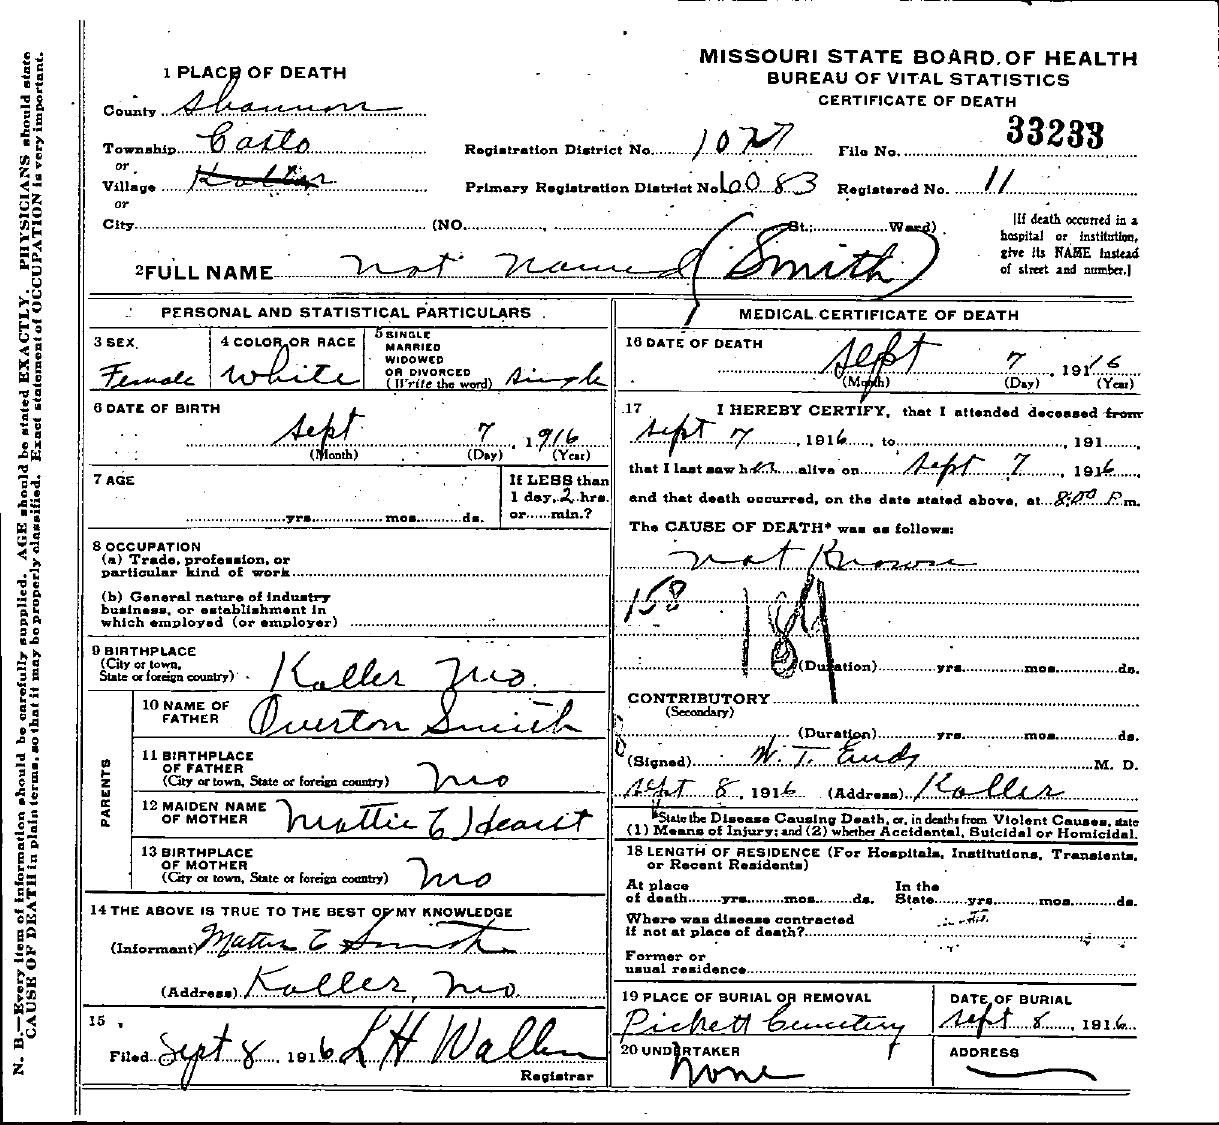 MISSOURI STATE BOARD OF HEALTH
BUREAU OF VITAL STATISTICS
CERTIFICATE OF DEATH
1 PLACE OF DEATH
County Shannon
Township Casto
or
Village
or
City (NO. St.; Ward)
Registration District No. 1027
File No. 33233
Primary Registration District No. 6083
Registered No. 11
[If death occurred in a hospital or institution, give its NAME instead of street and number.]
2 FULL NAME Not Named (Smith)
PERSONAL AND STATISTICAL PARTICULARS
3 SEX Female
4 COLOR OR RACE White
5 SINGLE MARRIED WIDOWED OR DIVORCED (Write the word) Single
6 DATE OF BIRTH
Sept 7, 1916
(Month) (Day) (Year)
7 AGE
yrs. mos. ds.
If LESS than 1 day, 2 hrs. or min.?
8 OCCUPATION
(a) Trade, profession, or particular kind of work
(b) General nature of industry business, or establishment in which employed (or employer)
9 BIRTHPLACE
(City or town, State or foreign country) Koller Mo.
PARENTS
10 NAME OF FATHER Overton Smith
11 BIRTHPLACE OF FATHER
(City or town, State or foreign country) Mo
12 MAIDEN NAME OF MOTHER Mattie E Heart
13 BIRTHPLACE OF MOTHER
(City or town, State or foreign country) Mo
14 THE ABOVE IS TRUE TO THE BEST OF MY KNOWLEDGE
(Informant) E Smith
(Address) Koller, Mo.
15
Filed Sept 8 1916 L H
Registrar
MEDICAL CERTIFICATE OF DEATH
16 DATE OF DEATH
Sept 7, 1916
(Month) (Day) (Year)
17 I HEREBY CERTIFY, that I attended deceased from
Sept 7, 1916, to , 191 ,
that I last saw her alive on Sept 7, 1916,
and that death occurred, on the date stated above, at 8:00 P.m.
The CAUSE OF DEATH* was as follows:
Not Known
158
189
(Duration) yrs. mos. ds.
CONTRIBUTORY
(Secondary)
(Duration) yrs. mos. ds.
(Signed) W. T. M. D.
Sept 8, 1916 (Address) Koller
*State the Disease Causing Death, or, in deaths from Violent Causes, state
(1) Means of Injury; and (2) whether Accidental, Suicidal or Homicidal.
18 LENGTH OF RESIDENCE (For Hospitals, Institutions, Transients, or Recent Residents)
At place of death yrs. mos. ds. In the State yrs. mos. ds.
Where was disease contracted
if not at place of death?
Former or
usual residence
19 PLACE OF BURIAL OR REMOVAL
Pickett Cemetery
DATE OF BURIAL
Sept 8, 1916
20 UNDERTAKER
None
ADDRESS
N. B.—Every item of information should be carefully supplied. AGE should be stated EXACTLY. PHYSICIANS should state
CAUSE OF DEATH in plain terms, so that it may be properly classified. Exact statement of OCCUPATION is very important.